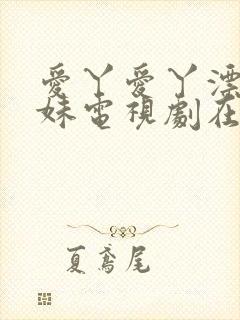 愛丫愛丫漂
妹電視劇在
夏鳶尾